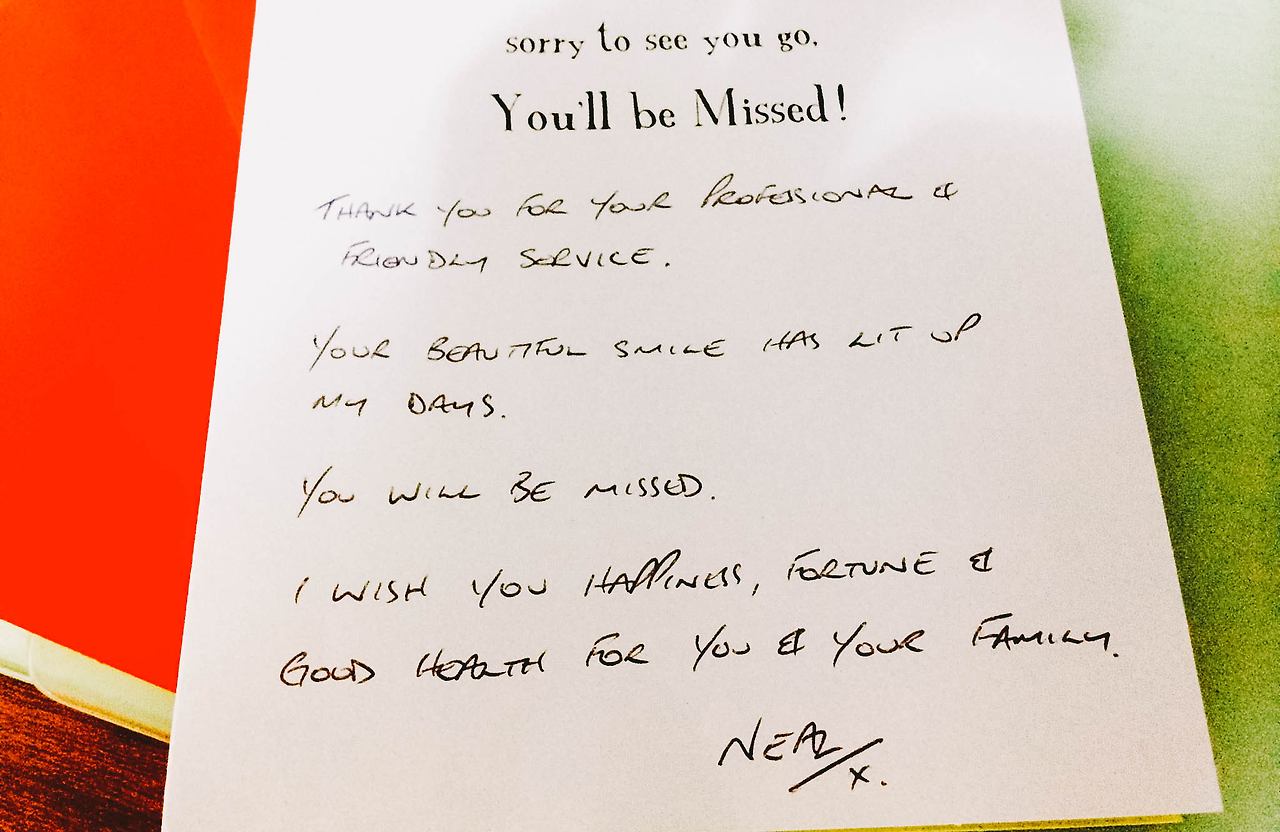 sorry to see you go,
You'll be Missed!
THANK YOU FOR YOUR PROFESSIONAL &
FRIENDLY SERVICE.
YOUR BEAUTIFUL SMILE HAS LIT UP
MY DAYS.
YOU WILL BE MISSED.
I WISH YOU HAPPINESS, FORTUNE &
GOOD HEALTH FOR YOU & YOUR FAMILY.
NEAL
x.